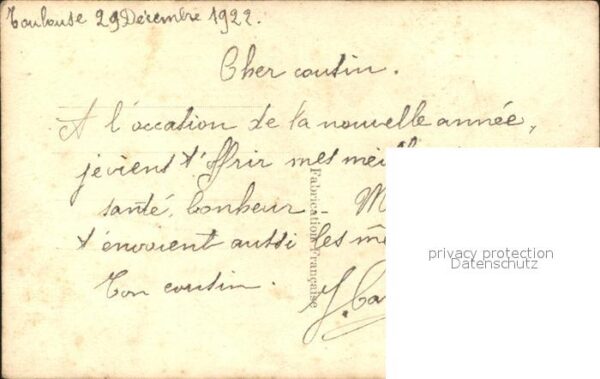 Toulouse 29 Décembre 1922.
Cher cousin.
A l'occasion de la nouvelle année,
je viens t'offrir mes
santé, bonheur.
t'envoient aussi les
Ton cousin.
Fabrication Française
privacy protection
Datenschutz